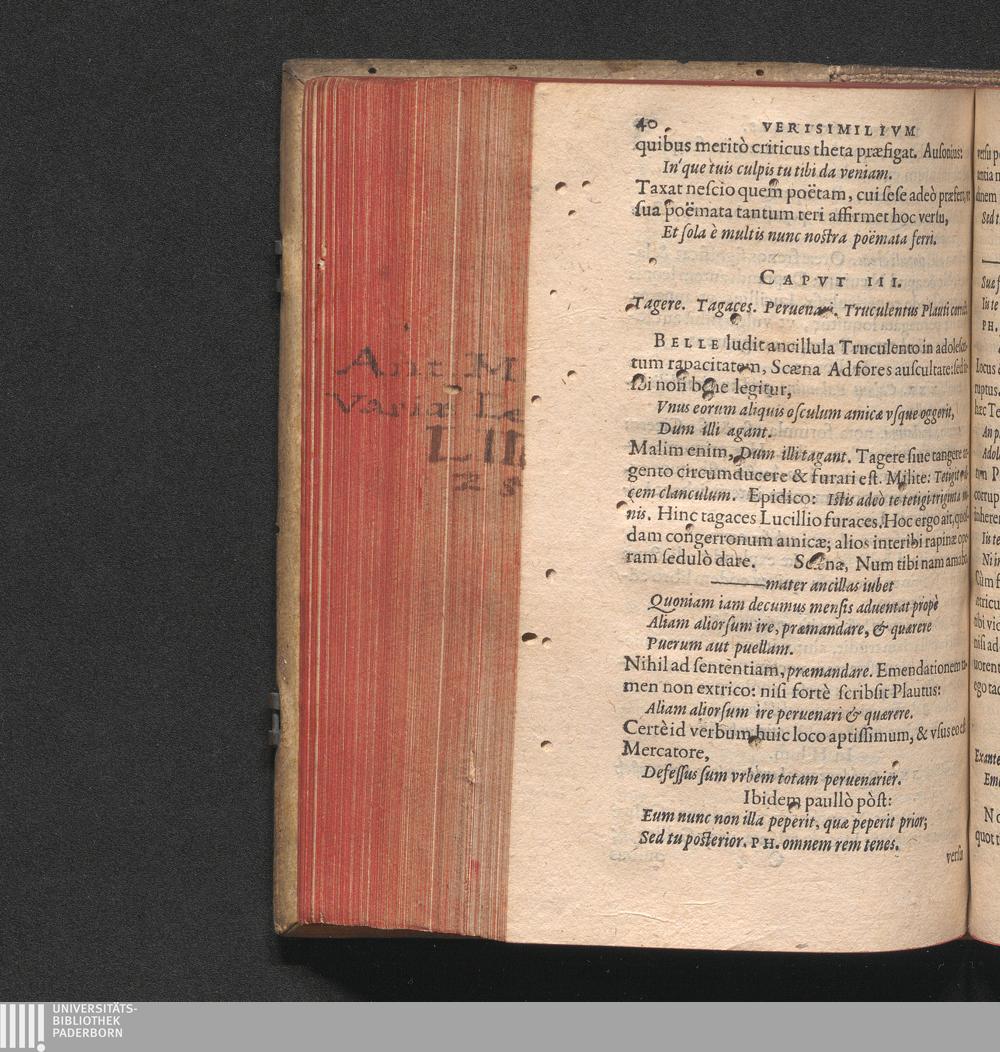 40 VERISIMILIVM
quibus meritò criticus theta præfigat. Ausonius:
In'que tuis culpis tu tibi da veniam.
Taxat nescio quem poëtam, cui sese adeò præfert,
sua poëmata tantum teri affirmet hoc versu,
Et sola è multis nunc nostra poëmata ferri.
CAPVT III.
Tagere. Tagaces. Peruenari. Truculentus Plauti
BELLE ludit ancillula Truculento in
tum rapacitatem, Scæna Ad fores auscultate:
ibi non bene legitur,
Vnus eorum aliquis osculum amicæ vsque oggerit,
Dum illi agant.
Malim enim, Dum illi tagant. Tagere siue tangere
gento circumducere & furari est. Milite: Tetigit
cem clanculum. Epidico: Istis adeò te tetigi triginta
nis. Hinc tagaces Lucillio furaces. Hoc ergo ait,
dam congerronum amicæ; alios interibi rapinæ
ram sedulò dare. Scæna, Num tibi nam
mater ancillas iubet
Quoniam iam decumus mensis aduentat propè
Aliam aliorsum ire, præmandare, & quærere
Puerum aut puellam.
Nihil ad sententiam, præmandare. Emendationem
men non extrico: nisi fortè scribsit Plautus:
Aliam aliorsum ire peruenari & quærere.
Certè id verbum huic loco aptissimum, & vsus eo est
Mercatore,
Defessus sum vrbem totam peruenarier.
Ibidem paullò pòst:
Eum nunc non illa peperit, quæ peperit prior;
Sed tu posterior. PH. omnem rem tenes.
versu
Ant. M
Variæ Le
LII
UNIVERSITÄTS-
BIBLIOTHEK
PADERBORN